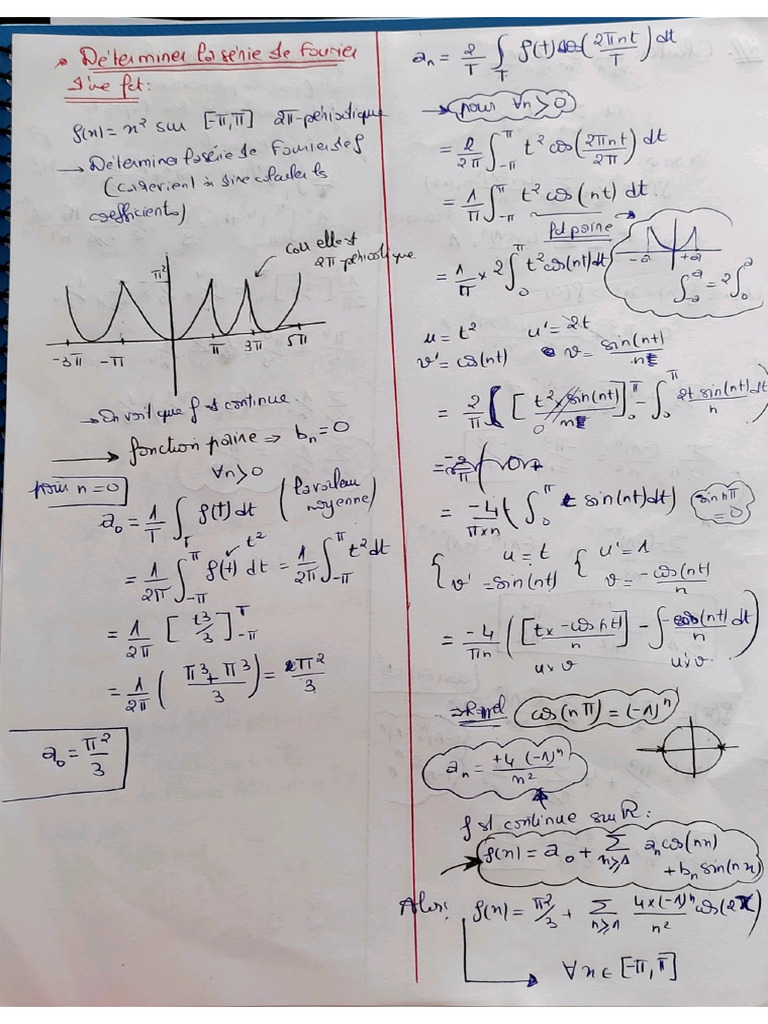 • Déterminer la série de Fourier
d'une fct:
f(x) = x² sur [-π,π] 2π-périodique
→ Déterminer la série de Fourier de f
(ça revient à dire calculer les
coefficients)
car elle est
2π-périodique
π²
-3π -π π 3π 5π
→ On voit que f est continue.
→ fonction paire ⇒ bₙ=0
∀n>0
pour n=0
a₀ = 1/T ∫_T f(t) dt (la valeur moyenne)
= 1/2π ∫_{-π}^{π} f(t) dt = 1/2π ∫_{-π}^{π} t² dt
t²
= 1/2π [t³/3]_{-π}^{π}
= 1/2π (π³+π³/3) = π²/3
a₀ = π²/3
aₙ = 2/T ∫_T f(t) cos(2πnt/T) dt
→ pour ∀n>0
= 2/2π ∫_{-π}^{π} t² cos(2πnt/2π) dt
= 1/π ∫_{-π}^{π} t² cos(nt) dt.
fct paire
-a +a
∫_{-a}^{a} = 2∫_0^a
= 1/π × 2 ∫_0^π t² cos(nt) dt
u = t² u' = 2t
v' = cos(nt) v = sin(nt)/n
= 2/π ( [t² × sin(nt)/n]_0^π - ∫_0^π 2t sin(nt)/n dt )
0
= -4/π×n ( ∫_0^π t sin(nt) dt )
sin nπ = 0
{ u = t { u' = 1
v' = sin(nt) v = -cos(nt)/n
= -4/πn ( [t × -cos(nt)/n] - ∫ -cos(nt)/n dt )
u×v u'×v
cos(nπ) = (-1)ⁿ
aₙ = +4 (-1)ⁿ/n²
f est continue sur R:
f(x) = a₀ + Σ_{n≥1} aₙ cos(nx)
+ bₙ sin(nx)
Alors: f(x) = π²/3 + Σ_{n≥1} 4×(-1)ⁿ/n² cos(2x)
∀x ∈ [-π,π]